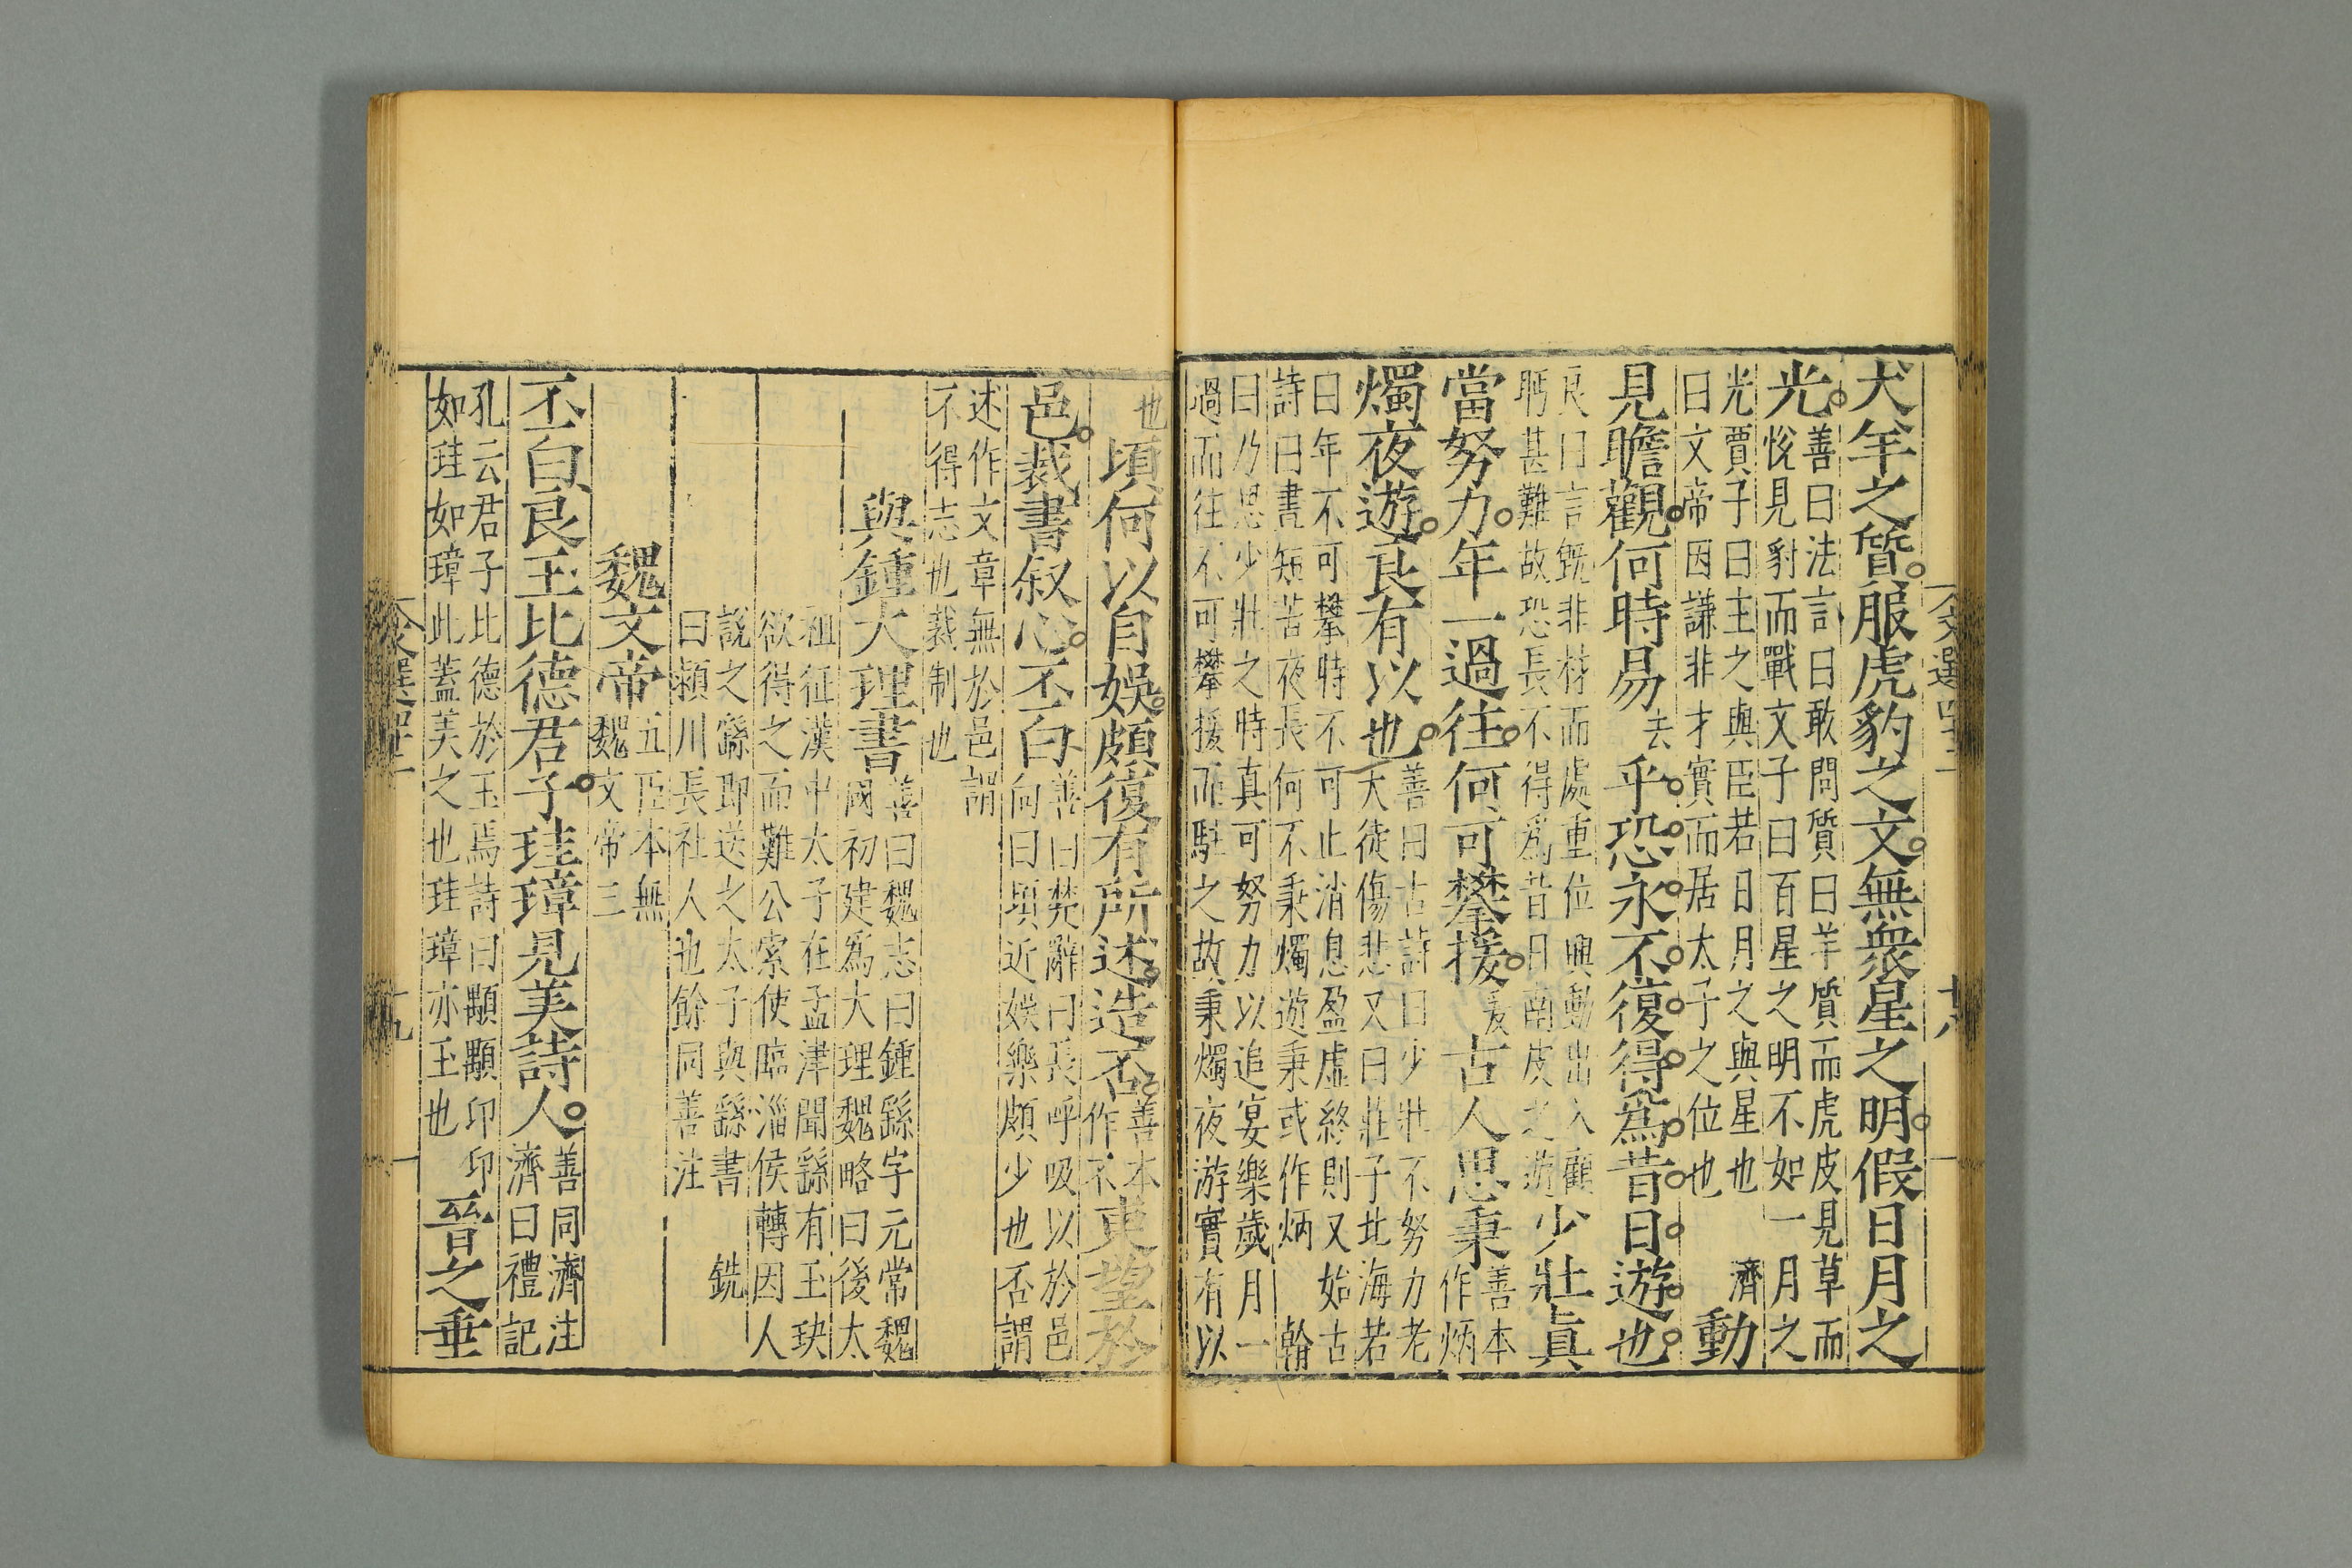 犬羊之質服虎豹之文無衆星之明假日月之
光
善曰法言曰敢問質曰羊質而虎皮見草而
悅見豺而戰文子曰百星之明不如一月之
光賈子曰主之與臣若日月之與星也 濟
曰文帝因謙非才實而居太子之位也
動
見瞻觀何時易
去
乎恐永不復得爲昔日遊也
良曰言既非材而處重位興動出入顧
眄甚難故恐長不得爲昔日南皮之遊
少壯真
當努力年一過往何可攀援
爰
古人思秉
善本
作炳
燭夜遊良有以也
善曰古詩曰少壯不努力老
大徒傷悲又曰莊子北海若
曰年不可攀時不可止消息盈虛終則又始古
詩曰晝短苦夜長何不秉燭遊秉或作炳 翰
曰乃思少壯之時真可努力以追宴樂歲月一
過而往不可攀援而駐之故秉燭夜游實有以
也
頃何以自娛頗復有所述造否
善本
作不
東望於
邑裁書叙心丕白
善曰楚辭曰長呼吸以於邑
向曰頃近娛樂頗少也否謂
述作文章無於邑謂
不得志也裁制也
與鍾大理書
善曰魏志曰鍾繇字元常魏
國初建爲大理魏略曰後太
祖征漢中太子在孟津聞繇有玉玦
欲得之而難公索使臨淄侯轉因人
說之繇即送之太子與繇書 銑
曰潁川長社人也餘同善注
魏文帝
五臣本無
魏文帝三
丕白良玉比德君子珪璋見美詩人
善同濟注
濟曰禮記
孔云君子比德於玉焉詩曰顒顒卬卬
如珪如璋此蓋美之也珪璋亦玉也
晉之垂